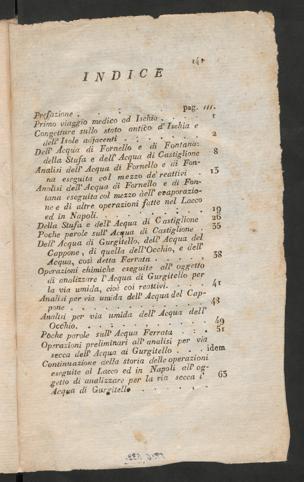 141
INDICE
Prefazione . . . . . . . pag. III.
Primo viaggio medico ad Ischia . . . . 1
Congetture sullo stato antico d'Ischia e
dell'Isole adjacenti . . . . . . 2
Dell'Acqua di Fornello e di Fontana:
della Stufa e dell'Acqua di Castiglione 8
Analisi dell'Acqua di Fornello e di Fon-
na eseguita col mezzo de' reattivi . 13
Analisi dell'Acqua di Fornello e di Fon-
tana eseguita col mezzo dell'evaporazio-
ne e di altre operazioni fatte nel Lacco
ed in Napoli. . . . . . . 19
Della Stufa e dell'Acqua di Castiglione 26
Poche parole sull'Acqua di Castiglione . 35
Dell'Acqua di Gurgitello, dell'Acqua del
Cappone, di quella dell'Occhio, e dell'
Acqua, così detta Ferrata . . . . 38
Operazioni chimiche eseguite all'oggetto
di analizzare l'Acqua di Gurgitello per
la via umida, cioè coi reattivi. . . 41
Analisi per via umida dell'Acqua del Cap-
pone . . . . . . . . 48
Analisi per via umida dell'Acqua dell'
Occhio. . . . . . . . 49
Poche parole sull'Acqua Ferrata . . . 51
Operazioni preliminari all'analisi per via
secca dell'Acqua di Gurgitello . . . idem
Continuazione della storia delle operazioni
eseguite al Lacco ed in Napoli all'og-
getto di analizzare per la via secca l'
Acqua di Gurgitello . . . . . 63